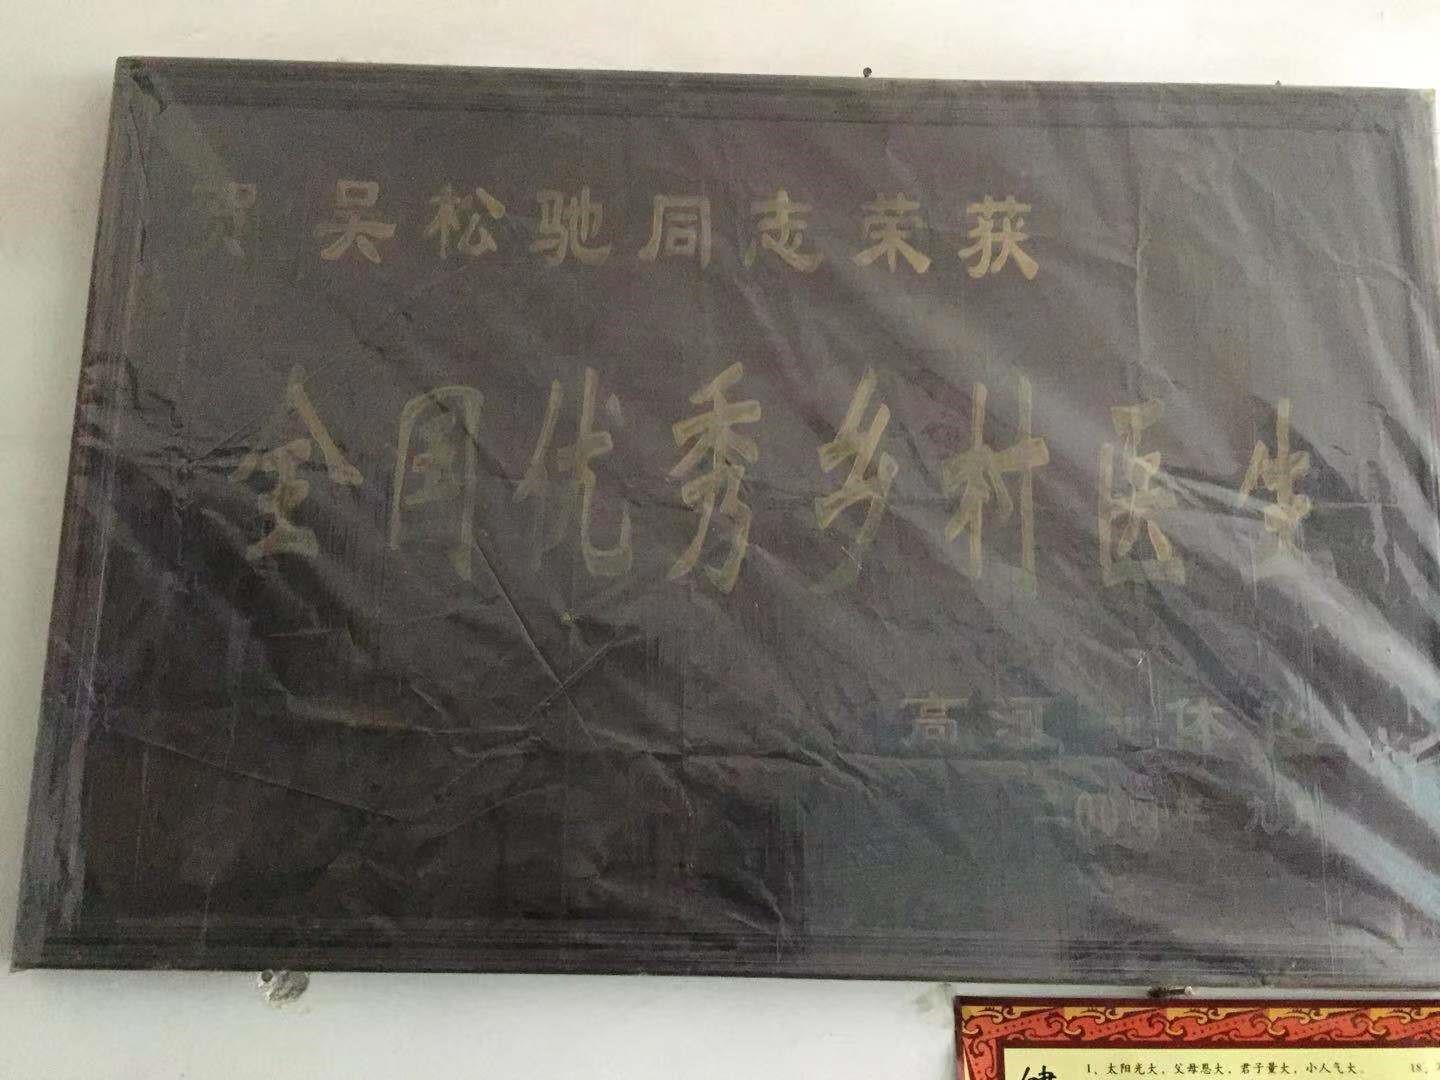 贺 吴松驰同志荣获
全国优秀乡村医生
高河一体
二00四年 九
1、太阳光大，父母恩大，君子量大，小人气大。 18、